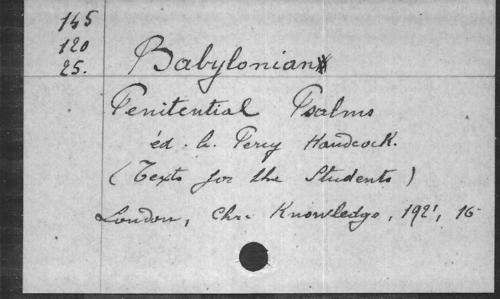 145
120
25.
Babylonian
Penitential Psalms
éd. by Percy Handcock.
(Texts for the Students)
London, Chr. Knowledge, 1921, 16